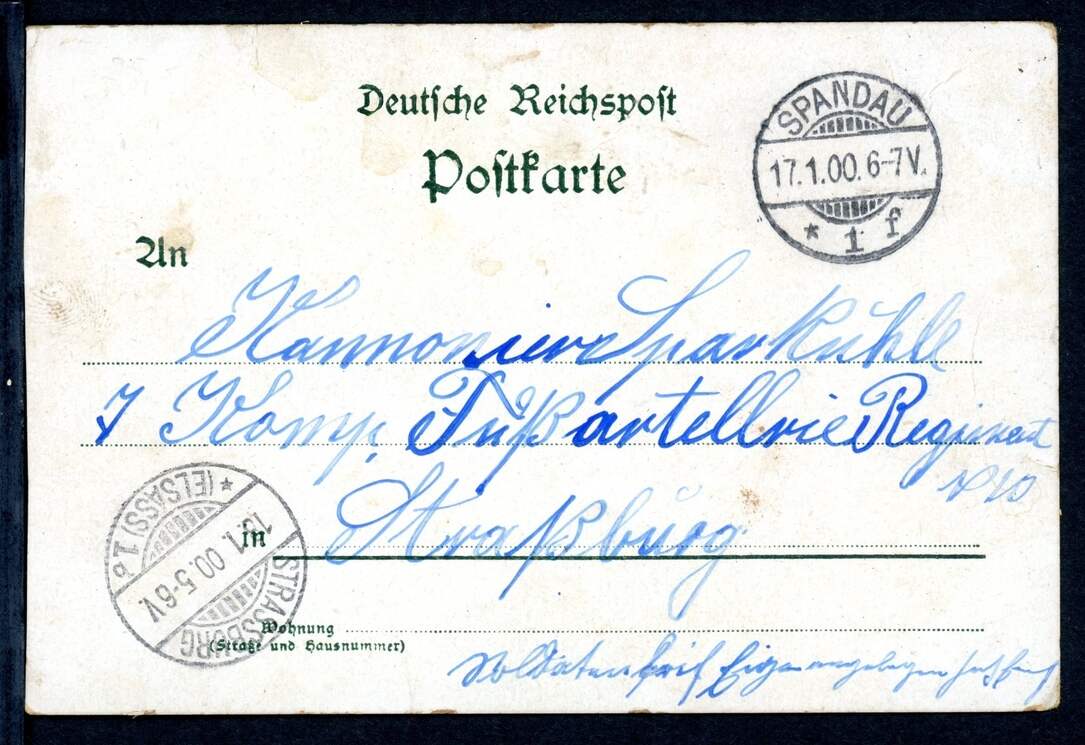 Deutsche Reichspost
Postkarte
SPANDAU
17.1.00.6-7V.
* 1 f
An
Kannonier Sparkühle
7 Komp. Fußartellrie Regiment
N 10
in Straßburg
STRASSBURG
1.00.5-6V.
* (ELSASS) 1.
Wohnung
(Straße und Hausnummer)
Soldatenbrief Eigen